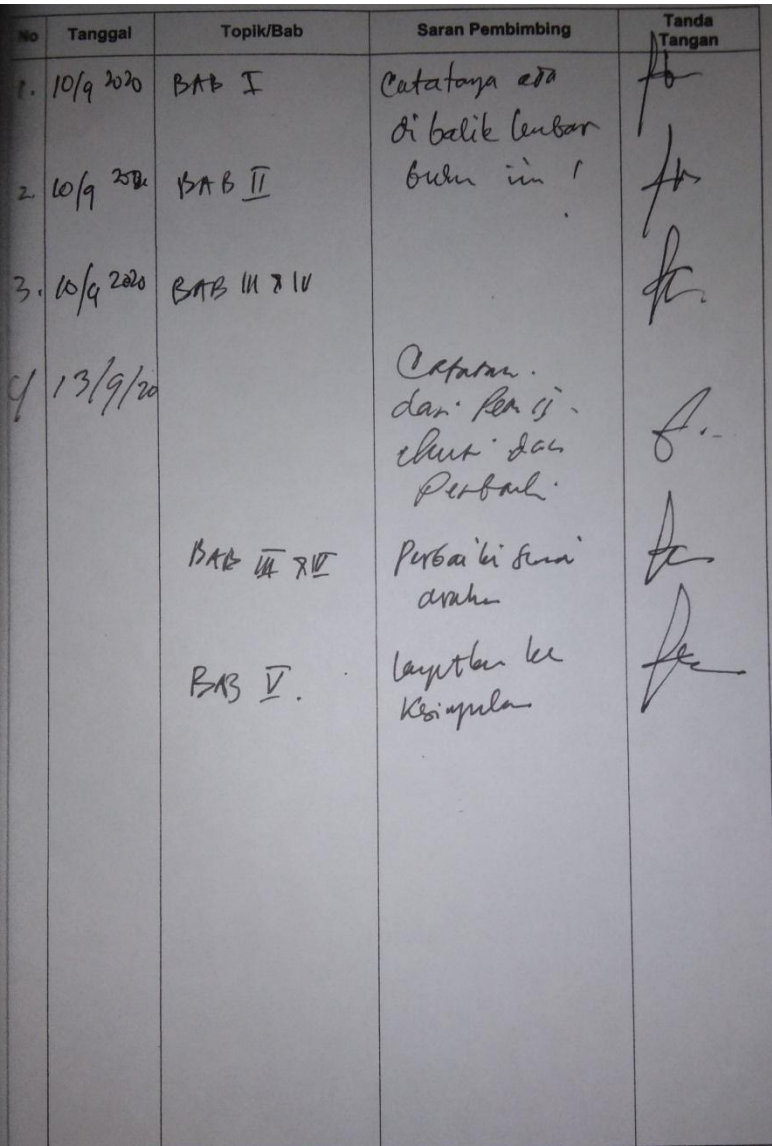 No Tanggal Topik/Bab Saran Pembimbing Tanda Tangan
1. 10/9 2020 BAB I Catatanya ada
di balik lembar
2. 10/9 2020 BAB II buku ini !
3. 10/9 2020 BAB III & IV
4 13/9/20 Catatan
dari
dan
BAB III & IV Perbaiki sesuai
arahan
BAB V. Lanjutkan ke
Kesimpulan